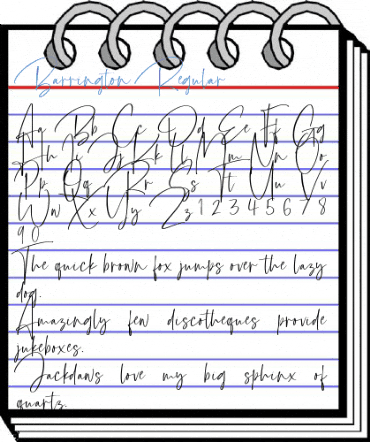 Barrington Regular
Aa Bb Cc Dd Ee Ff Gg
Hh Ii Jj Kk Ll Mm Nn Oo
Pp Qq Rr Ss Tt Uu Vv
Ww Xx Yy Zz 1 2 3 4 5 6 7 8
9 0
The quick brown fox jumps over the lazy
dog.
Amazingly few discotheques provide
jukeboxes.
Jackdaws love my big sphinx of
quartz.